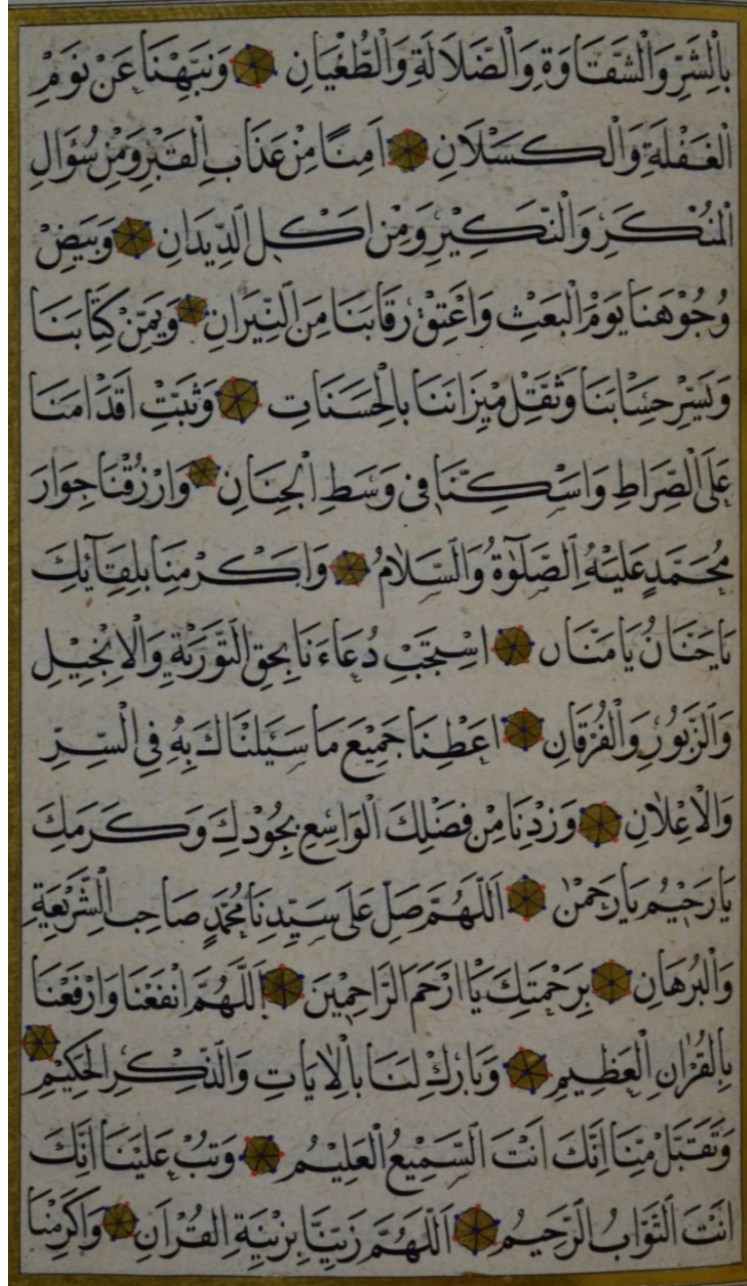 بِالشَّرِّ وَالشَّقَاوَةِ وَالضَّلَالَةِ وَالطُّغْيَانِ وَنَبِّهْنَا عَنْ نَوْمِ
الْغَفْلَةِ وَالْكَسْلَانِ اٰمِنًا مِنْ عَذَابِ الْقَبْرِ وَمِنْ سُؤَالِ
الْمُنْكَرِ وَالنَّكِيْرِ وَمِنْ اَكْلِ الدِّيدَانِ وَبَيِّضْ
وُجُوْهَنَا يَوْمَ الْبَعْثِ وَاَعْتِقْ رِقَابَنَا مِنَ النِّيْرَانِ وَيَمِّنْ كِتَابَنَا
وَيَسِّرْ حِسَابَنَا وَثَقِّلْ مِيْزَانَنَا بِالْحَسَنَاتِ وَثَبِّتْ اَقْدَامَنَا
عَلَى الصِّرَاطِ وَاَسْكِنَّا فِى وَسَطِ الْجِنَانِ وَارْزُقْنَا جِوَارَ
مُحَمَّدٍ عَلَيْهِ الصَّلٰوةُ وَالسَّلَامُ وَاَكْرِمْنَا بِلِقَآئِكَ
يَا حَنَّانُ يَا مَنَّانُ اسْتَجِبْ دُعَاءَنَا بِحَقِّ التَّوْرٰيةِ وَالْاِنْجِيْلِ
وَالزَّبُوْرِ وَالْفُرْقَانِ اَعْطِنَا جَمِيْعَ مَا سَئَلْنَاكَ بِهٖ فِى السِّرِّ
وَالْاِعْلَانِ وَزِدْنَا مِنْ فَضْلِكَ الْوَاسِعِ بِجُوْدِكَ وَكَرَمِكَ
يَا رَحِيْمُ يَا رَحْمٰنُ اَللّٰهُمَّ صَلِّ عَلَى سَيِّدِنَا مُحَمَّدٍ صَاحِبِ الشَّرِيْعَةِ
وَالْبُرْهَانِ بِرَحْمَتِكَ يَا اَرْحَمَ الرَّاحِمِيْنَ اَللّٰهُمَّ انْفَعْنَا وَارْفَعْنَا
بِالْقُرْاٰنِ الْعَظِيْمِ وَبَارِكْ لَنَا بِالْاٰيَاتِ وَالذِّكْرِ الْحَكِيْمِ
وَتَقَبَّلْ مِنَّا اِنَّكَ اَنْتَ السَّمِيْعُ الْعَلِيْمُ وَتُبْ عَلَيْنَا اِنَّكَ
اَنْتَ التَّوَّابُ الرَّحِيْمُ اَللّٰهُمَّ زَيِّنَّا بِزِيْنَةِ الْقُرْاٰنِ وَاَكْرِمْنَا